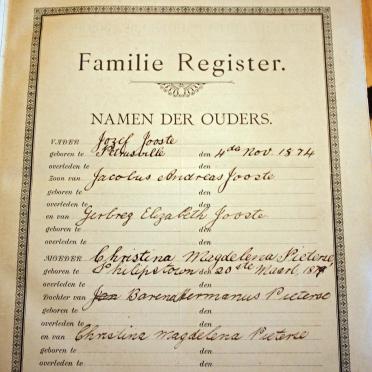 Familie Register.
NAMEN DER OUDERS.
VADER Jozef Jooste
geboren te Petrusville den 4de Nov. 1874
overleden te den
Zoon van Jacobus Andreas Jooste
geboren te den
overleden te den
en van Gerbreg Elizabeth Jooste
geboren te den
overleden te den
MOEDER Christina Magdelena Pieterse
geboren te Philipstown den 20ste Maart 187
overleden te den
Dochter van Jan Barend Hermanus Pieterse
geboren te den
overleden te den
en van Christina Magdelena Pieterse
geboren te den
overleden te den